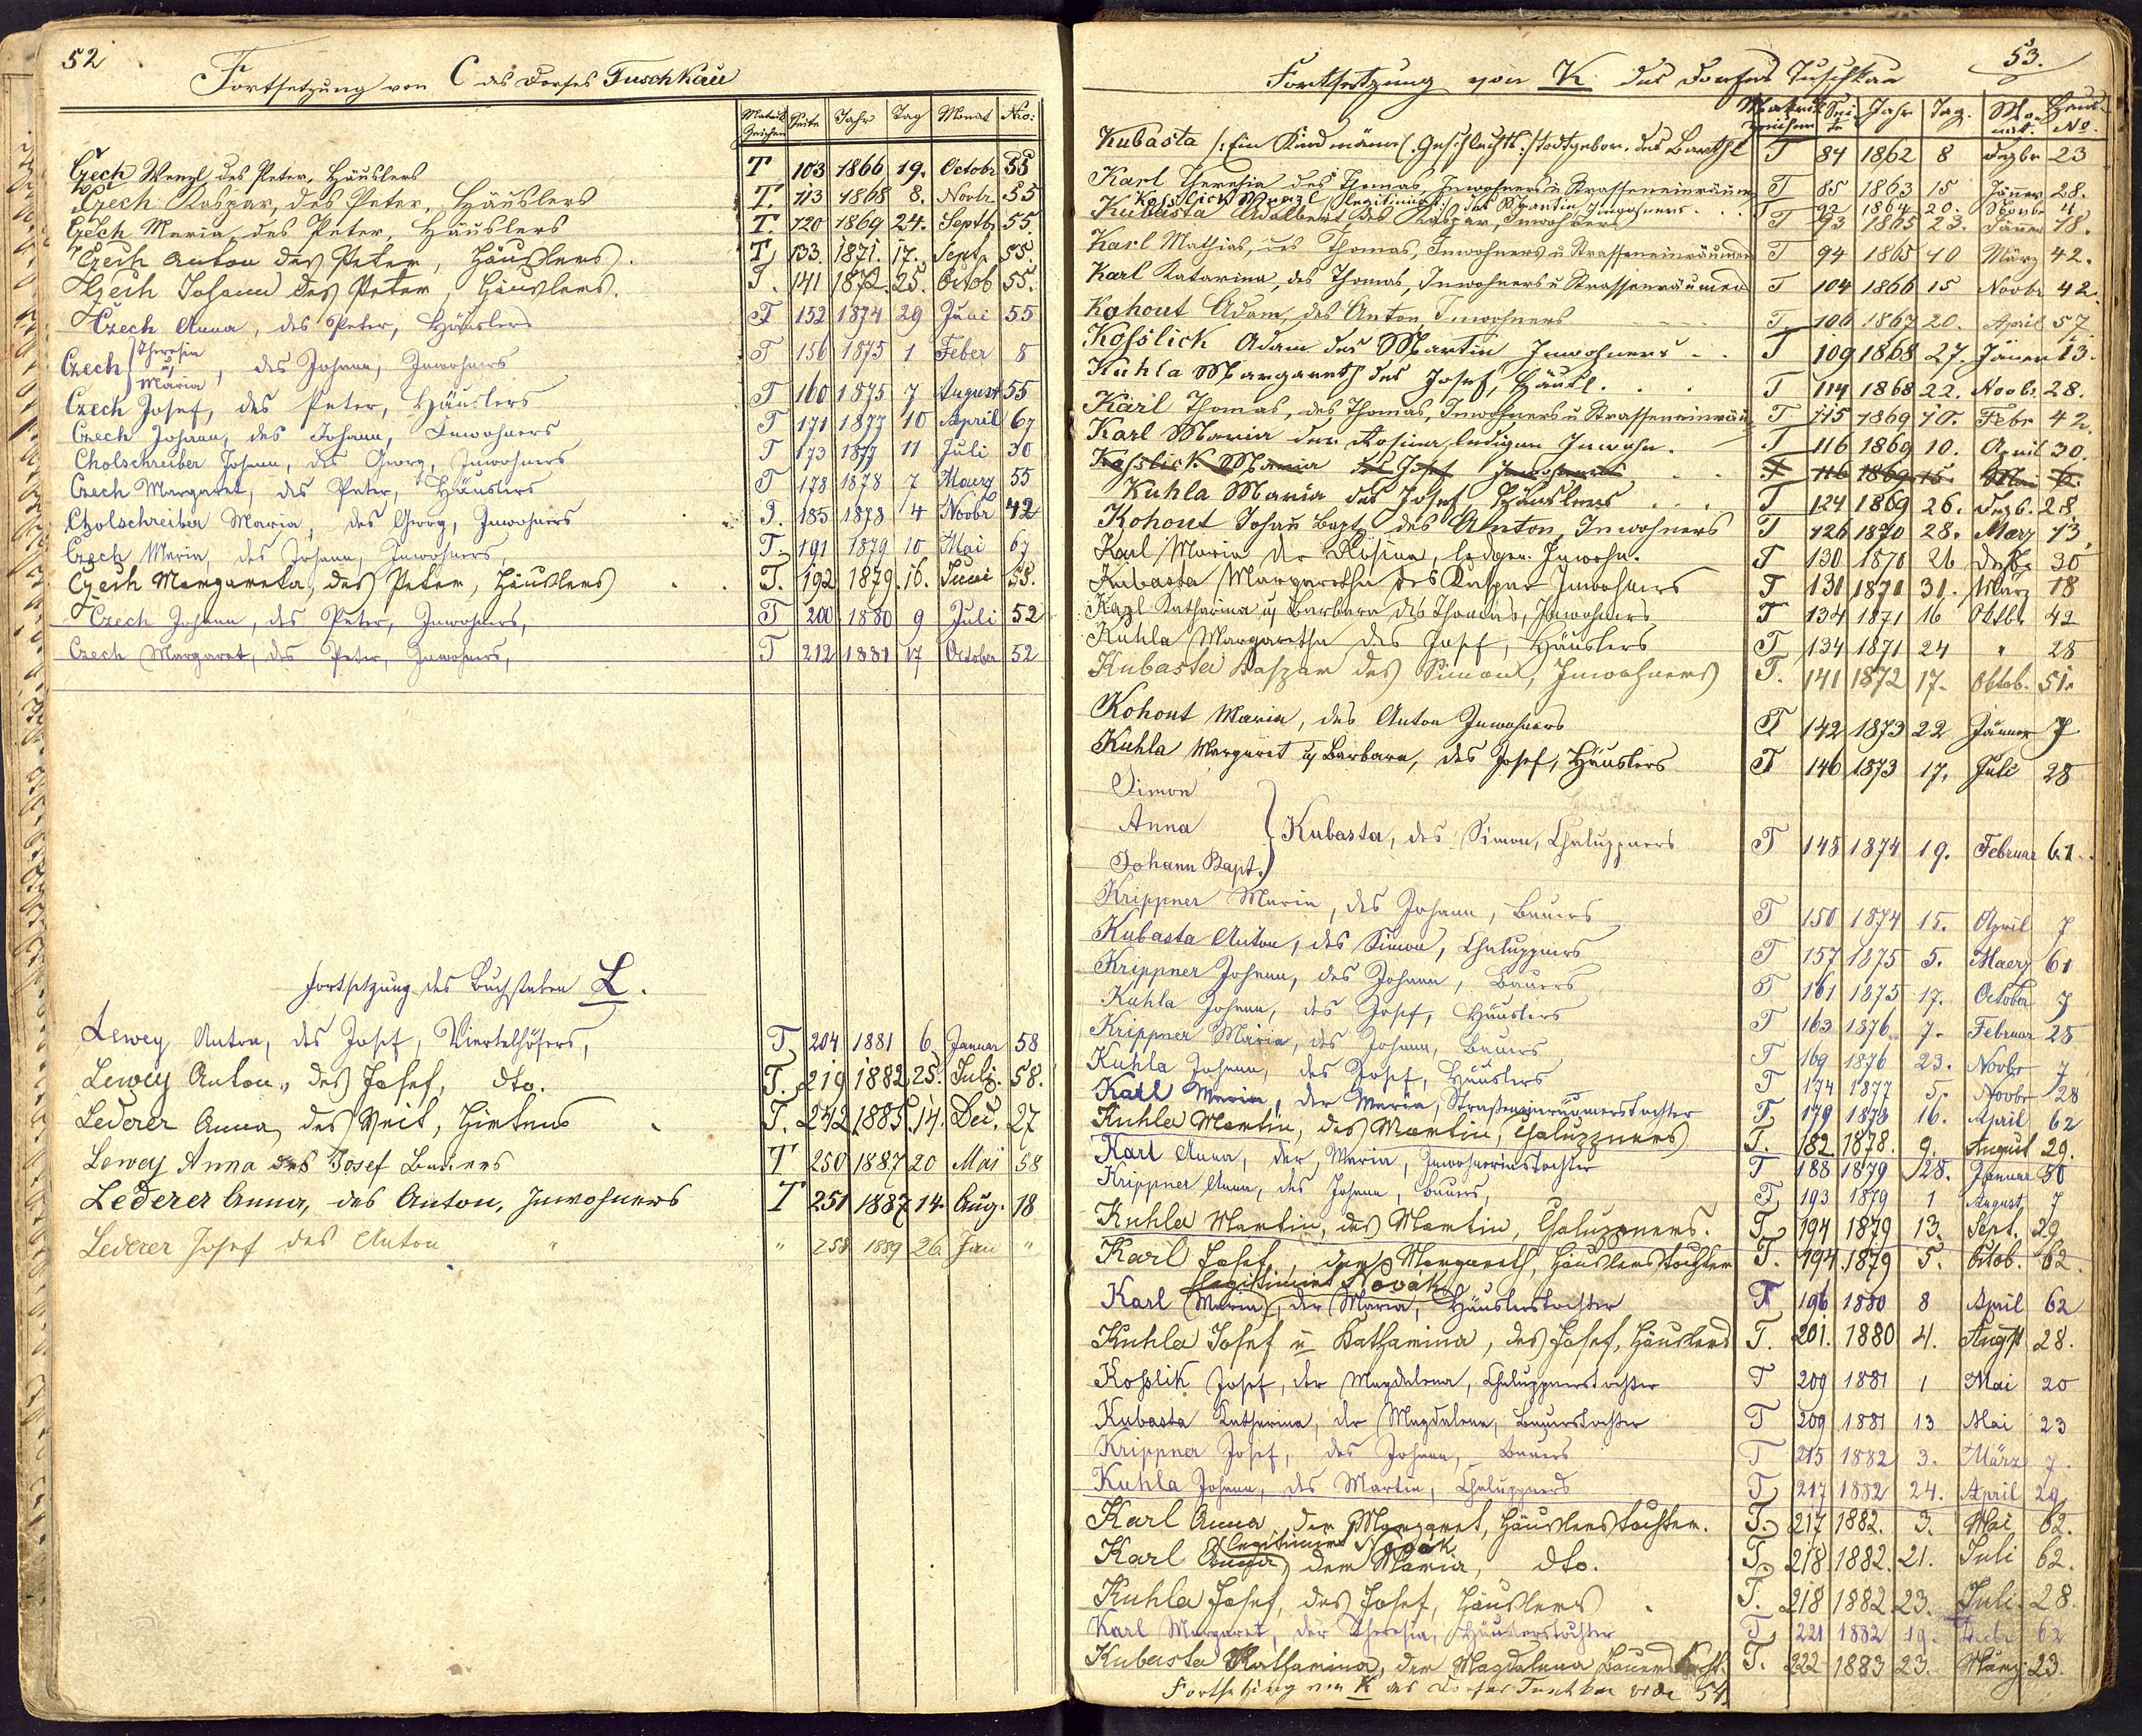 52
Fortsetzung von C des Dorfes Tuschkau
Matrik Zeichen Seite Jahr Tag Monat Nro:
Czech Wenzl des Peter, Häuslers T 103 1866 19. Octobr 55
Czech Kaspar, des Peter, Häuslers T. 113 1868 8. Novbr. 55
Czech Maria des Peter, Häuslers T. 120 1869 24. Septbr 55.
Czech Anton des Peter, Häuslers. T. 133. 1871. 17. Sept. 55.
Czech Johann des Peter, Häuslers. T. 141 1872. 25. Octob 55.
Czech Anna, des Peter, Häuslers T 152 1874 29 Juni 55
Czech Theresia u Maria, des Johann, Inwohners T 156 1875 1 Feber 8
Czech Josef, des Peter, Häuslers T 160 1875 7 August 55
Czech Johann, des Johann, Inwohners T 171 1877 10 April 67
Cholschreiber Johann, des Georg, Inwohners T 173 1877 11 Juli 30
Czech Margaret, des Peter, Häuslers T 178 1878 7 Maerz 55
Cholschreiber Maria, des Georg, Inwohners T. 185 1878 4 Novbr 42
Czech Maria, des Johann, Inwohners T. 191 1879 10 Mai 67
Czech Margareta, des Peter, Häuslers T. 192 1879. 16. Juni 55.
Czech Johann, des Peter, Inwohners, T 200 1880 9 Juli 52
Czech Margaret, des Peter, Inwohners, T 212 1881 17 October 52
Fortsetzung des Buchstaben L.
Lewey Anton, des Josef, Viertelhöfers, T. 204 1881 6 Januar 58
Lewey Anton, des Josef, dto. T. 219 1882 25. Juli. 58.
Lederer Anna, des Veit, Hirtens T. 242 1885. 14. Dec. 27
Lewey Anna des Josef Bauers T 250 1887 20 Mai 58
Lederer Anna, des Anton, Inwohners T 251 1887 14. Aug. 18
Lederer Josef des Anton " " 258 1889 26 Jan "
53.
Fortsetzung von K des Dorfes Tuschkau
Matrik zeichen Seite Jahr Tag. Monat. Haus No.
Kubasta /: Ein Kind männl. Geschlechts :/ todtgebor. des Barthl T 84 1862 8 Dezbr 23
Karl Theresia des Thomas, Inwohners u Strasseneinräumer T 85 1863 15 Jäner 28.
Kosslick Wenzl /legitimirt/ des Martin Inwohners T 92 1864 20. Novbr 4
Kubasta Adalbert des Kaspar, Inwohners T 93 1865 23. Jäner 18.
Karl Mathias, des Thomas, Inwohners u Strasseneinräumer T 94 1865 10 März 42.
Karl Katarina, des Thomas, Inwohners u Strassenräumers T 104 1866 15 Novbr 42.
Kohout Adam, des Anton, Inwohners T. 106 1867 20. April 57.
Kosslick Adam des Martin Inwohners T 109 1868 27. Jäner 13.
Kuhla Margareth des Josef, Häusl. T 114 1868 22. Novbr. 28.
Karl Thomas, des Thomas, Inwohners u Strasseneinräu T 115 1869 10. Febr 42.
Karl Maria der Rosina, ledigen Inwohn. T 116 1869 10. April 30.
Kosslick Maria des Josef Inwohners T 116 1869 15. Mai 6.
Kuhla Maria des Josef Häuslers T 124 1869 26. Dezb. 28.
Kohout Johañ Bapt des Anton, Inwohners T 126 1870 28. März 13.
Karl Maria der Rosina, ledgen. Inwohn. T 130 1870 26 Dezbr 30
Kubasta Margaretha des Kaspar Inwohners T 131 1871 31. März 18
Karl Katharina u Barbara des Thomas, Inwohners T 134 1871 16 Oktbr 42
Kuhla Margaretha des Josef, Häuslers T 134 1871 24 " 28
Kubasta Kaspar des Simon, Inwohners T. 141 1872 17. Oktob. 51.
Kohout Maria, des Anton Inwohners T 142 1873 22 Jänner 7
Kuhla Margaret u Barbara, des Josef, Häuslers T 146 1873 17. Juli 28
Simon
Anna Kubasta, des Simon, Chaluppners T 148 1874 19. Februar 61.
Johann Bapt.
Krippner Maria, des Johann, Bauers T 150 1874 15. April 7
Kubasta Anton, des Simon, Chaluppners T 157 1875 5. Maerz 61
Krippner Johann, des Johann, Bauers T 161 1875 17. October 7
Kuhla Johann, des Josef, Häuslers T 163 1876 7. Februar 28
Krippner Maria, des Johann, Bauers T 169 1876 23. Novbr 7
Kuhla Johann, des Josef, Häuslers T 174 1877 5. Novbr 28
Karl Maria, der Maria, Straßeneinräumerstochter T. 179 1878 16. April 62
Kuhla Martin, des Martin, Chaluppners T. 182 1878. 9. August 29.
Karl Anna, der Maria, Inwohnerinstochter T 188 1879 28. Januar 50
Krippner Anna, des Johann, Bauers, T. 193 1879 1 August 7
Kuhla Martin, des Martin, Chaluppners. T. 194 1879 13. Sept. 29
Karl Josef, der Margareth, Häuslerstochter T. 194. 1879 5. Octob. 62.
legitimirt Novák
Karl Maria, der Maria, Häuslerstochter T 196 1880 8 April 62
Kuhla Josef u Katharina, des Josef, Häuslers T. 201. 1880 4. Augst 28.
Kosslik Josef, der Magdalena, Chaluppnerstochter T 209 1881 1 Mai 20
Kubasta Katharina, der Magdalena, Bauerstochter T 209 1881 13 Mai 23
Krippner Josef, des Johann, Bauers T 215 1882 3. März 7.
Kuhla Johann, des Martin, Chaluppners T. 217 1882 24. April 29.
Karl Anna der Margaret, Häuslerstochter. T. 217 1882. 3. Mai 62.
legitimirt Novák
Karl Anna, der Maria, dto. T. 218 1882. 21. Juli 62.
Kuhla Josef, des Josef, Häuslers T. 218 1882. 23. Juli. 28.
Karl Margaret, der Theresia, Häuslerstochter T. 221 1882 19. 62
Kubasta Katharina, der Magdalena Bauers T. 222 1883 23. März. 23.
Fortsetzung von K des Dorfes Tuschkau vide 54.